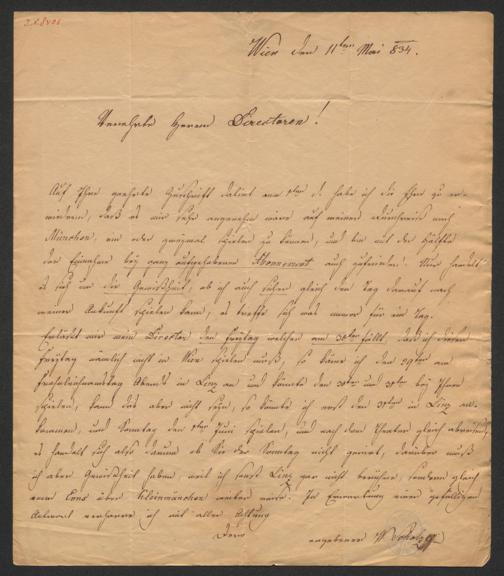 Wien den 11ten Mai 834.
Verehrte Herrn Directoren!
Auf Ihre geehrte Zuschrift datirt vom ten d. habe ich die Ehre zu er-
wiedern, daß es mir sehr angenehm wäre auf meiner Durchreise nach
München, ein oder zweymal spielen zu können, und bin mit der Hälfte
der Einnahme bey ganz aufgehobenem Abonnement auch zufrieden. Nur handelt
es sich um die Gewißheit, ob ich auch sicher gleich den Tag darauf nach
meiner Ankunft spielen kann, es treffe sich was immer für ein Tag.
Entläßt mich mein Director den Freitag welcher am 30ten fällt, daß ich diesen
Freitag nämlich nicht in Wien spielen muß, so käme ich den 29ten am
Frohnleichnamstag Abends in Linz an, und könnte den 30ten und 31ten bey Ihnen
spielen, kann das aber nicht seyn, so könnte ich erst den 31ten in Linz an-
kommen, und Sonntag den 1ten Juni spielen, und nach dem Theater gleich abreisen
es handelt sich also darum ob Sie den Sonntag nicht , darüber muß
ich aber Gewißheit haben, weil ich sonst Linz gar nicht berühre, sondern gleich
von Enns über Kleinmünchen weiter reise. In Erwartung einer gefälligen
Antwort verharre ich mit aller Achtung
Dero
ergebener W Scholz